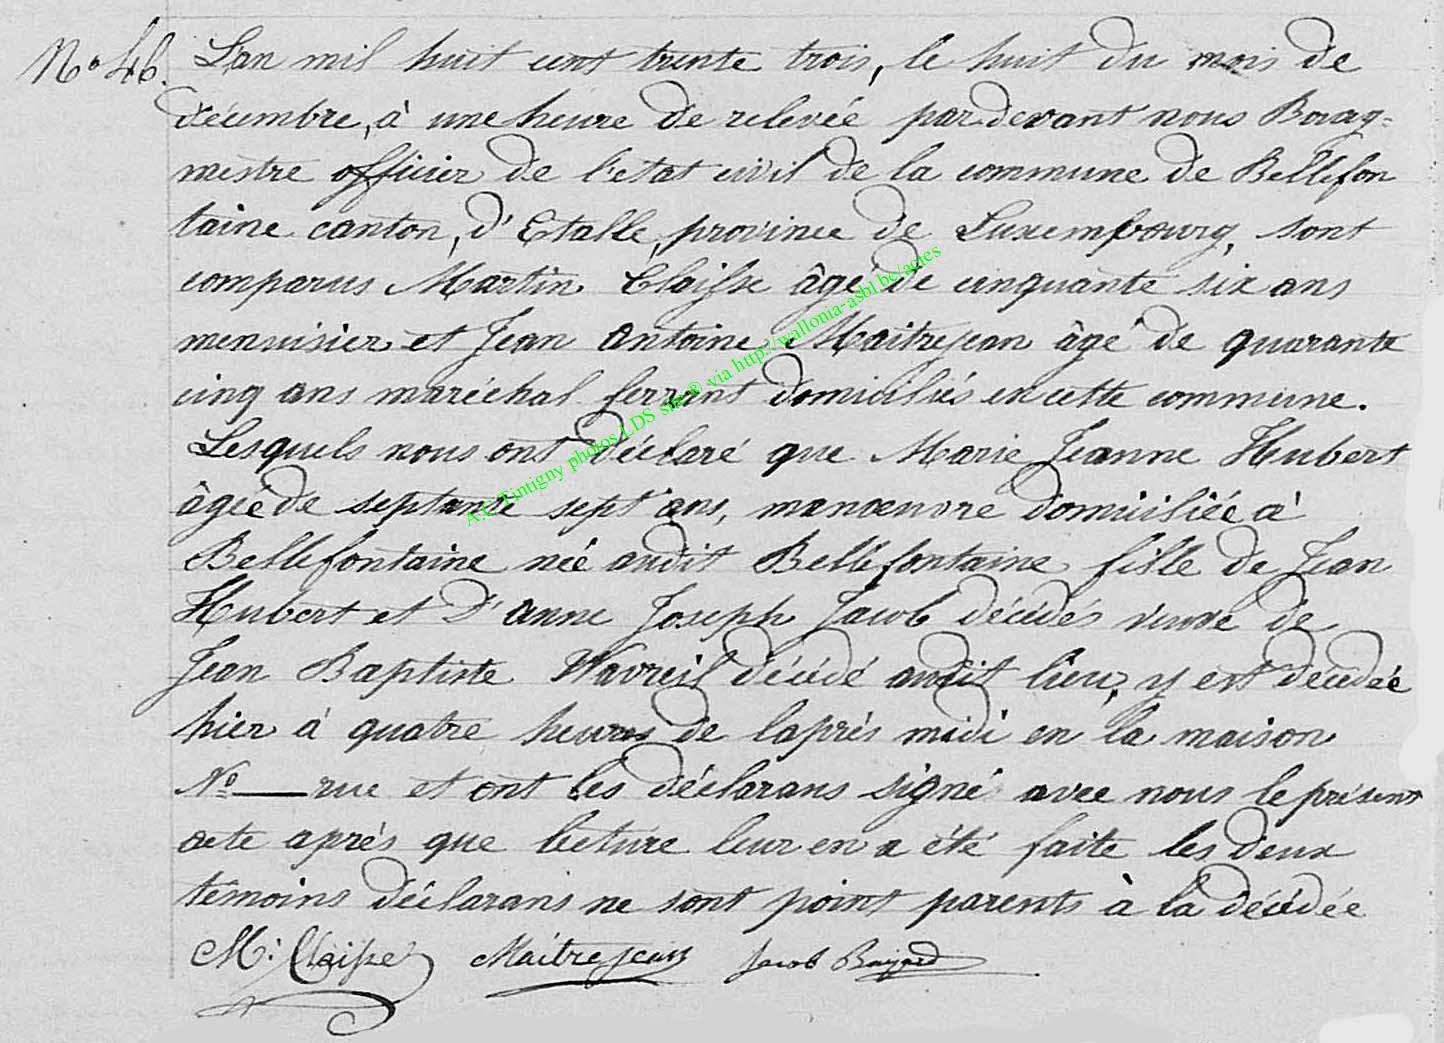 No 46. L'an mil huit cent trente trois, le huit du mois de
décembre, à une heure de relevée pardevant nous Bourg-
mestre officier de l'etat civil de la commune de Bellefon
taine canton, d'Etalle, province de Luxembourg, sont
comparus Martin Claisse âgé de cinquante six ans
menuisier et Jean Antoine Maitrejean âgé de quarante
cinq ans maréchal ferrant domiciliés en cette commune.
Lesquels nous ont déclaré que Marie Jeanne Hubert
âgée de septante sept ans, manœuvre domiciliée à
Bellefontaine née audit Bellefontaine fille de Jean
Hubert et d'anne Joseph Jacob décédés veuve de
Jean Baptiste Wavreil décédé audit lieu, y est décédée
hier à quatre heures de laprés midi en la maison
No — rue et ont les déclarans signé avec nous le présent
acte aprés que lecture leur en a été faite les deux
témoins déclarans ne sont point parents à la décédée
M: Claisse Maitrejean Jacob Bayard
A.C Tintigny photos LDS site® via http://wallonia-asbl.be/actes